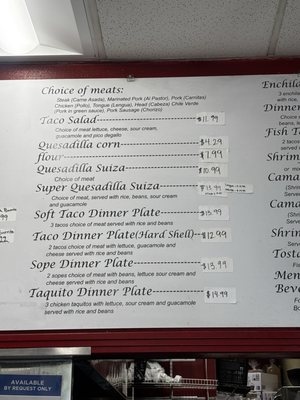 Choice of meats:
Steak (Carne Asada), Marinated Pork (Al Pastor), Pork (Carnitas)
Chicken (Pollo), Tongue (Lengua), Head (Cabeza) Chile Verde
(Pork in green sauce), Pork Sausage (Chorizo)
Taco Salad $11.99
Choice of meat lettuce, cheese, sour cream,
guacamole and pico degallo
Quesadilla corn $4.29
flour $7.99
Quesadilla Suiza $10.99
Choice of meat
Super Quesadilla Suiza $13.99
Choice of meat, served with rice, beans, sour cream
and guacamole
Soft Taco Dinner Plate $13.99
3 tacos choice of meat served with rice and beans
Taco Dinner Plate(Hard Shell) $12.99
2 tacos choice of meat with lettuce, guacamole and
cheese served with rice and beans
Sope Dinner Plate $13.99
2 sopes choice of meat with beans, lettuce sour cream and
cheese served with rice and beans
Taquito Dinner Plate $14.99
3 chicken taquitos with lettuce, sour cream and guacamole
served with rice and beans
Enchila
3 enchila
with rice,
Dinner
Choice of
rice and b
Fish Ta
2 tacos
served
Shrim
Cama
Cama
Shrim
Served
Tosta
Men
Beve
99
AVAILABLE
BY REQUEST ONLY